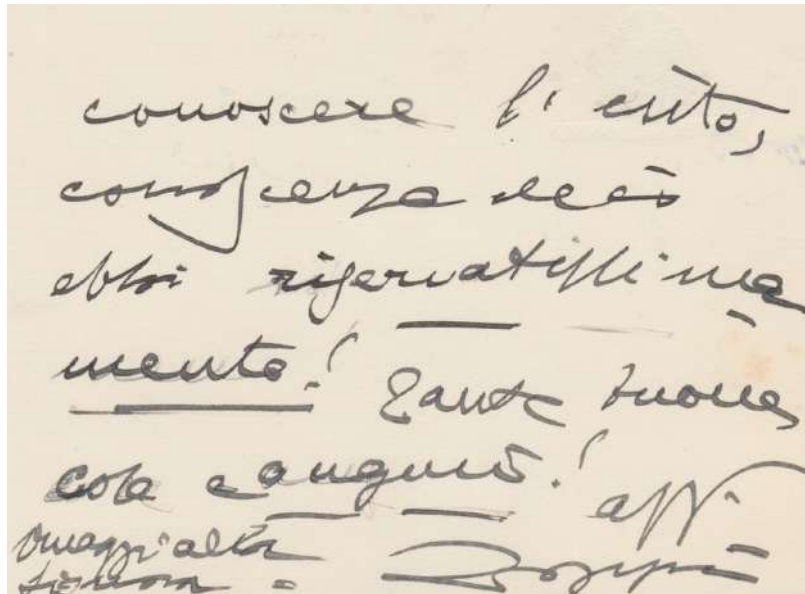 conoscere l'esito,
conoscenza
ebbi riservatissima
mente! Tante buone
cose e auguri!
aff.
Omaggi alla
signora